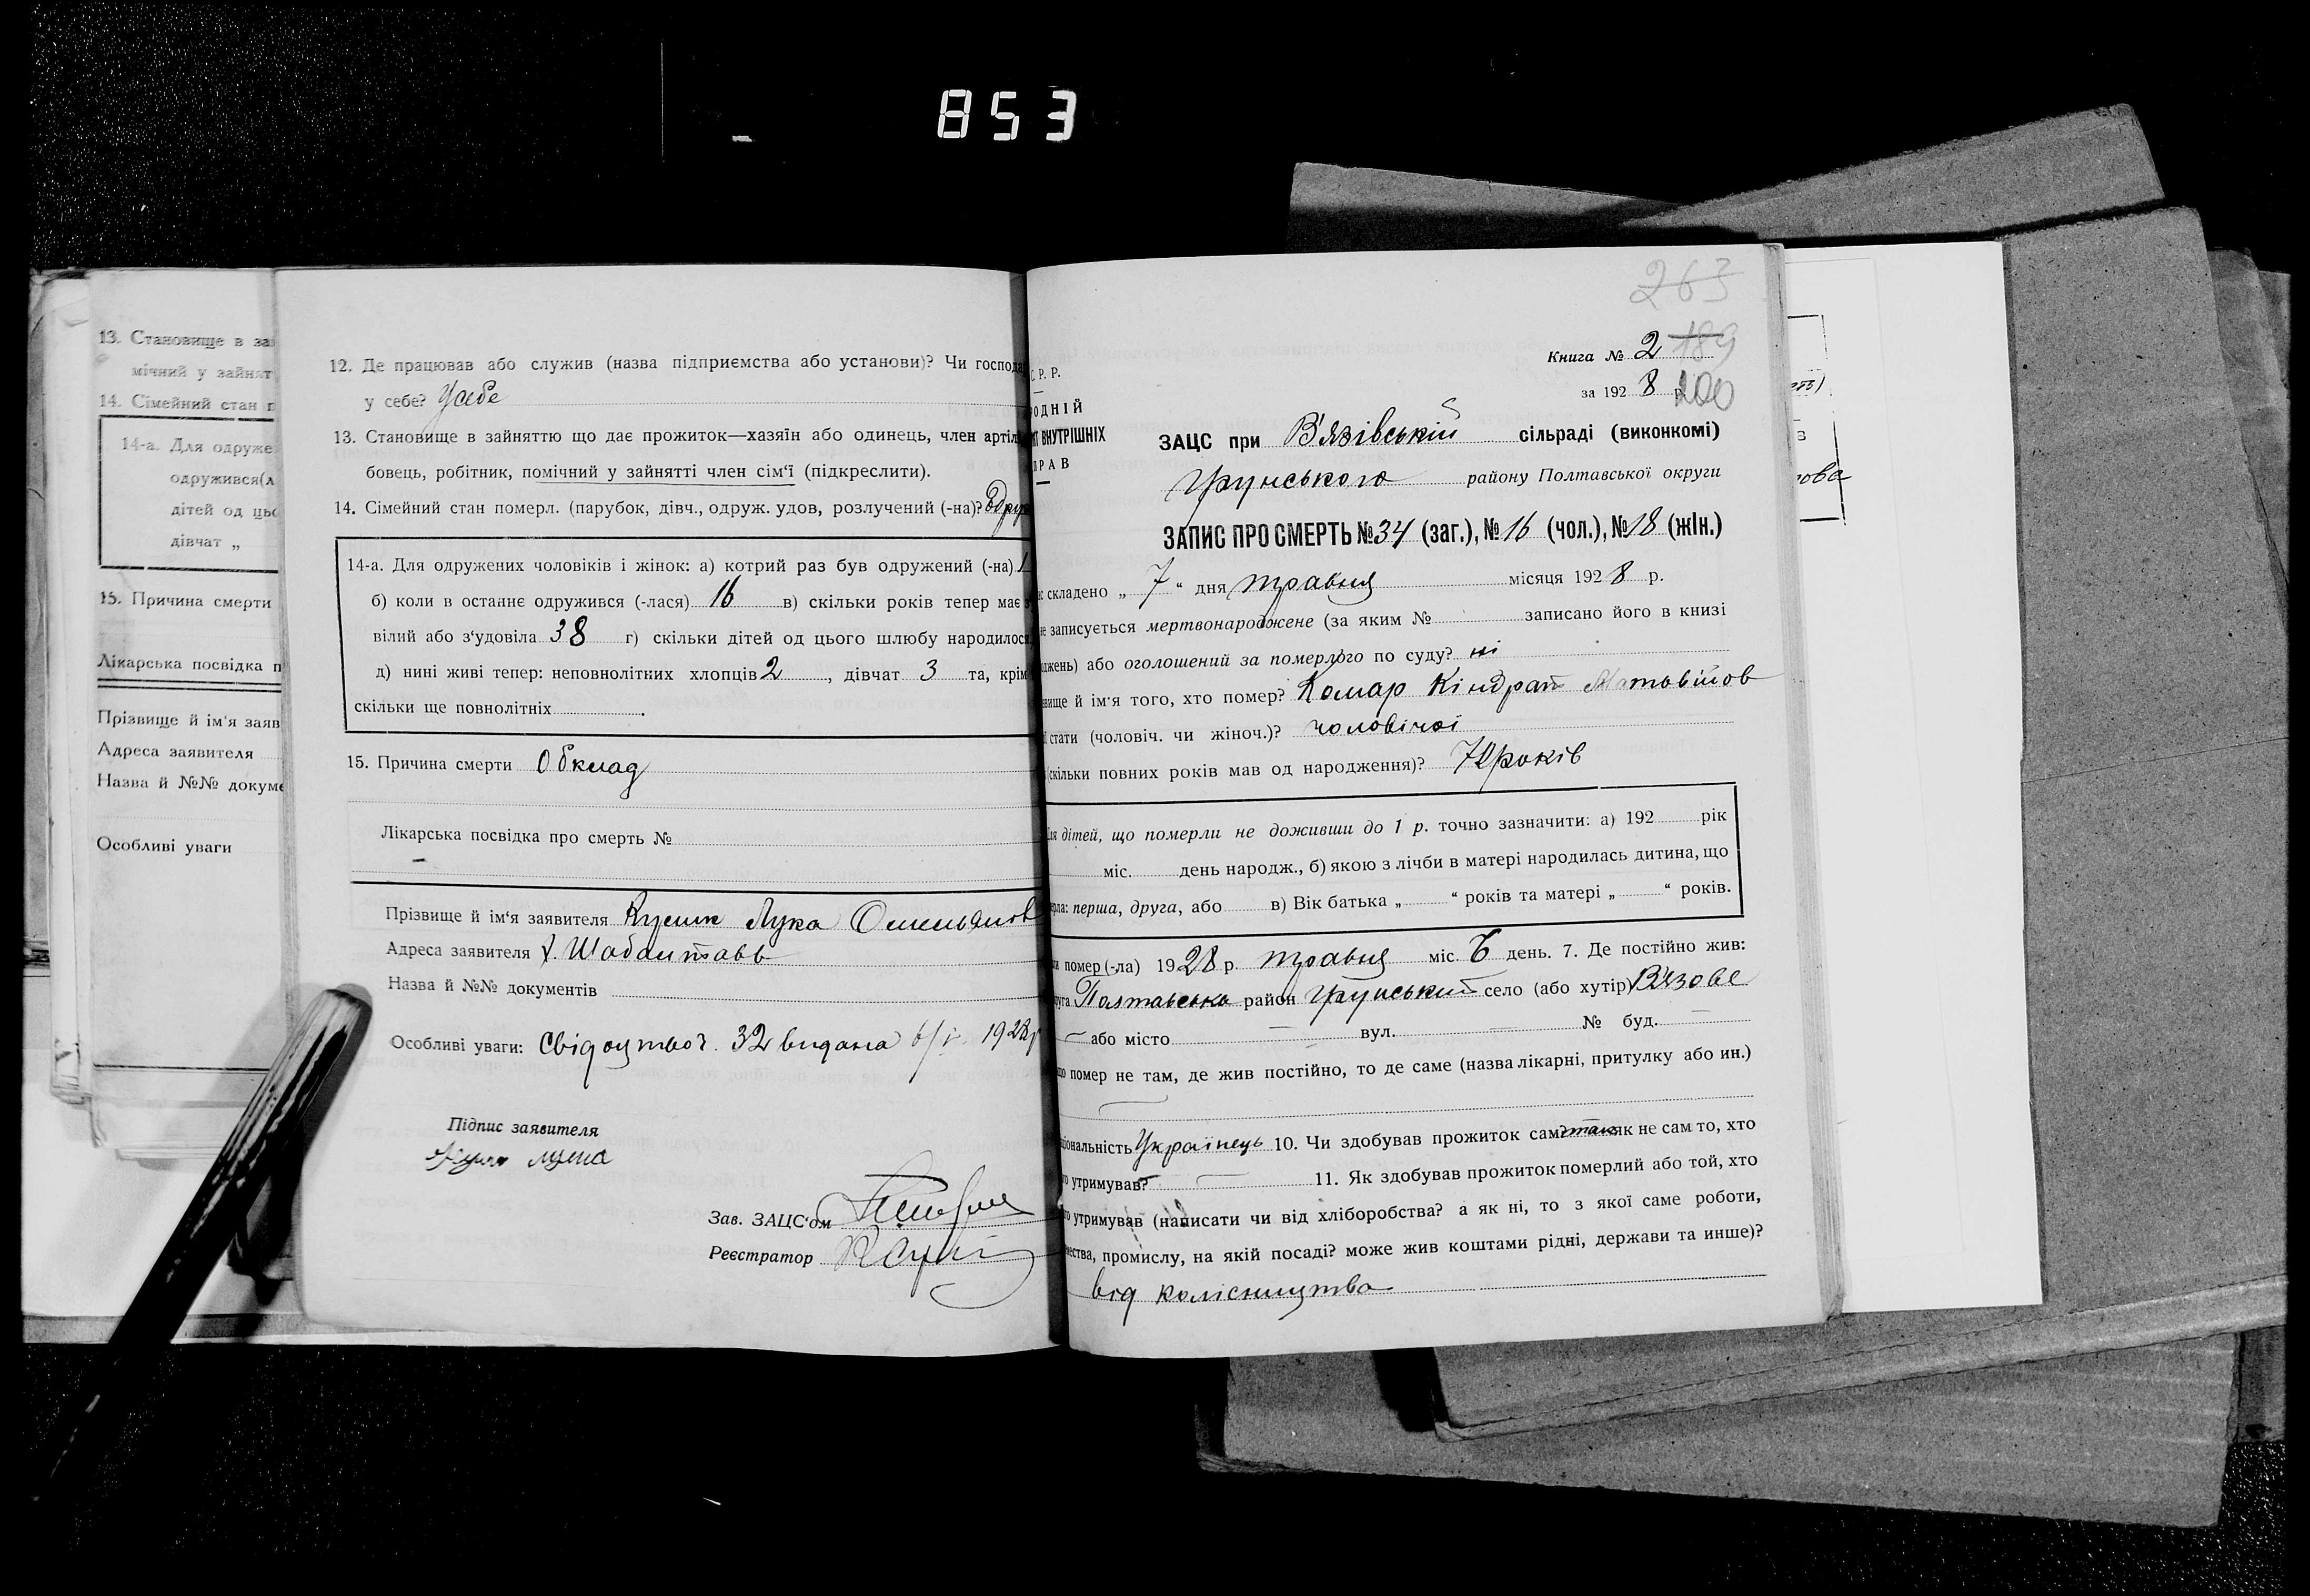 853
13. Становище в за
мічний у зайнят
14. Сімейний стан п
14-а. Для одруже
одружився(л
дітей од цьо
дівчат „
15. Причина смерти
Лікарська посвідка п
Прізвище й ім'я заяв
Адреса заявителя
Назва й №№ докуме
Особливі уваги
12. Де працював або служив (назва підприємства або установи)? Чи господа
у себе? У себе
13. Становище в зайняттю що дає прожиток—хазяїн або одинець, член артіл
бовець, робітник, помічний у зайнятті член сім'ї (підкреслити).
14. Сімейний стан померл. (парубок, дівч., одруж. удов, розлучений (-на)? Одруж
14-а. Для одружених чоловіків і жінок: а) котрий раз був одружений (-на) 1
б) коли в останнє одружився (-лася) 16 в) скільки років тепер має з
вілий або з'удовіла 38 г) скільки дітей од цього шлюбу народилося
д) нині живі тепер: неповнолітних хлопців 2, дівчат 3 та, крім
скільки ще повнолітніх
15. Причина смерти Обклад
Лікарська посвідка про смерть №
—
Прізвище й ім'я заявителя Лука Омельянов
Адреса заявителя х.
Назва й №№ документів
Особливі уваги: Свідоцтво ч. 32 видана 1928р
Підпис заявителя
Лука
Зав. ЗАЦС'ом
Реєстратор
263
Книга № 2 189
за 1928 р. 200
С. Р. Р.
ОДНІЙ
Т ВНУТРІШНІХ
ПРАВ
ЗАЦС при В'язівській сільраді (виконкомі)
Грунського району Полтавської округи
ЗАПИС ПРО СМЕРТЬ № 34 (заг.), № 16 (чол.), № 18 (жін.)
складено „ 7 “ дня травня місяця 1928 р.
не записується мертвонароджене (за яким № записано його в книзі
джень) або оголошений за померлого по суду? ні
вище й ім'я того, хто помер? Комар Кіндрат Матовійов
стати (чоловіч. чи жіноч.)? чоловічої
(скільки повних років мав од народження)? 72 років
ля дітей, що померли не доживши до 1 р. точно зазначити: а) 192 рік
міс. день народж., б) якою з лічби в матері народилась дитина, що
рла: перша, друга, або в) Вік батька „ “ років та матері „ “ років.
помер (-ла) 1928 р. травня міс. 6 день. 7. Де постійно жив:
руга Полтавська район Грунський село (або хутір) В'язове
— або місто — вул. — № буд. —
помер не там, де жив постійно, то де саме (назва лікарні, притулку або ин.)
—
ціональність Українець 10. Чи здобував прожиток сам? так як не сам то, хто
утримував? — 11. Як здобував прожиток померлий або той, хто
утримував (написати чи від хліборобства? а як ні, то з якої саме роботи,
ества, промислу, на якій посаді? може жив коштами рідні, держави та инше)?
від колісництва